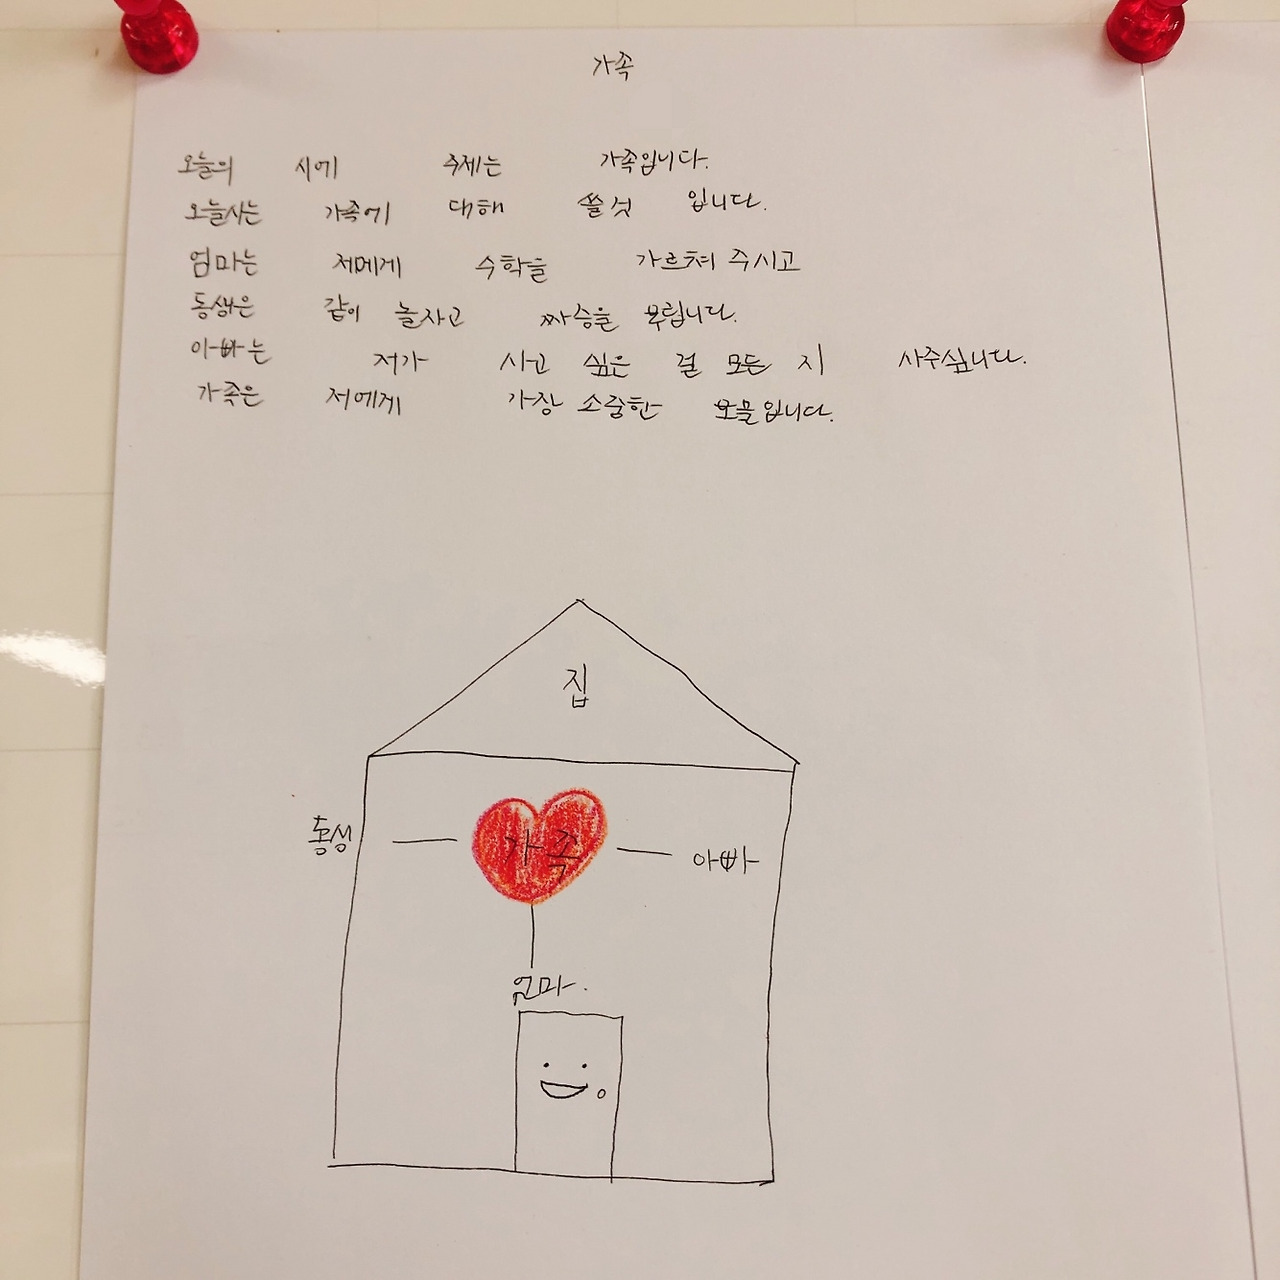 가족
오늘의 시에 주제는 가족입니다.
오늘시는 가족에 대해 쓸것 입니다.
엄마는 저에게 수학을 가르쳐 주시고
동생은 같이 놀자고 짜증을 부립니다.
아빠는 저가 사고 싶은 걸 모든 지 사주십니다.
가족은 저에게 가장 소중한 보물입니다.
집
동생 가족 아빠
엄마.